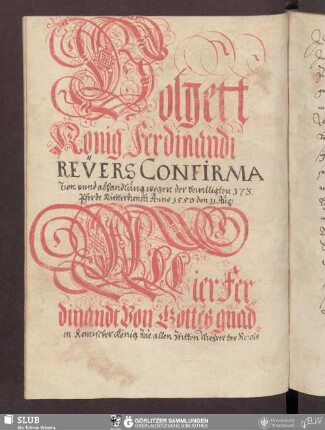 Volgett
König Ferdinandi
REVERS CONFIRMA
Tion unnd abhandlung wegen der bewilligten 173.
Pferde Ritterdienst Anno 1550 den 11 Aug:
Wier Fer
dinandt Von Gottes gnad
en Römischer König, zue allen Zeitten Mehrer des Reichs
SLUB
Wir führen Wissen.
GÖRLITZER SAMMLUNGEN
OBERLAUSITZISCHE BIBLIOTHEK